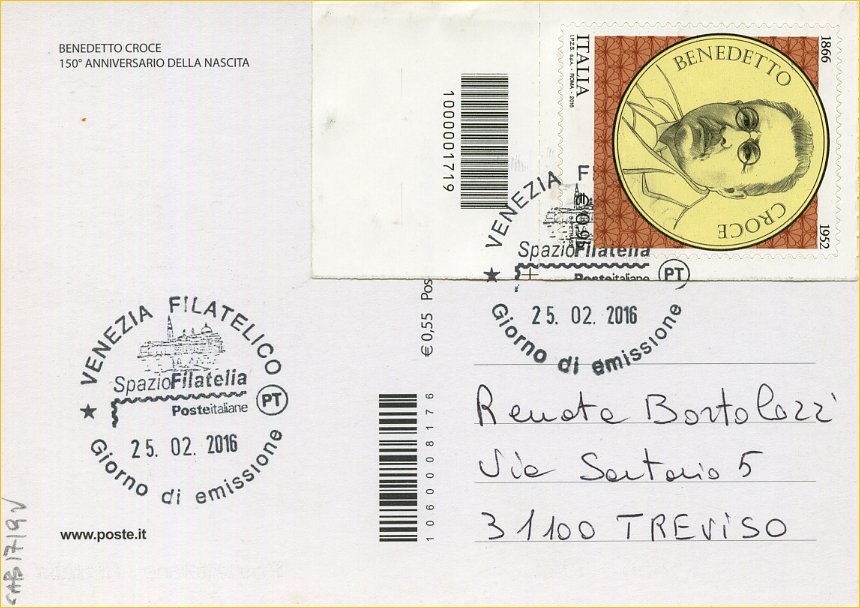 BENEDETTO CROCE
150° ANNIVERSARIO DELLA NASCITA
1000001719
ITALIA
I.P.Z.S. S.p.A. - ROMA - 2016
1866
BENEDETTO
CROCE
1952
€ 0,95
VENEZIA FI
SpazioFilatelia
Posteitaliane PT
25. 02. 2016
Giorno di emissione
€ 0,55 Pos
VENEZIA FILATELICO
SpazioFilatelia
Posteitaliane PT
25. 02. 2016
Giorno di emissione
1060008176
Renata Bortolozzi
Via Sartorio 5
31100 TREVISO
www.poste.it